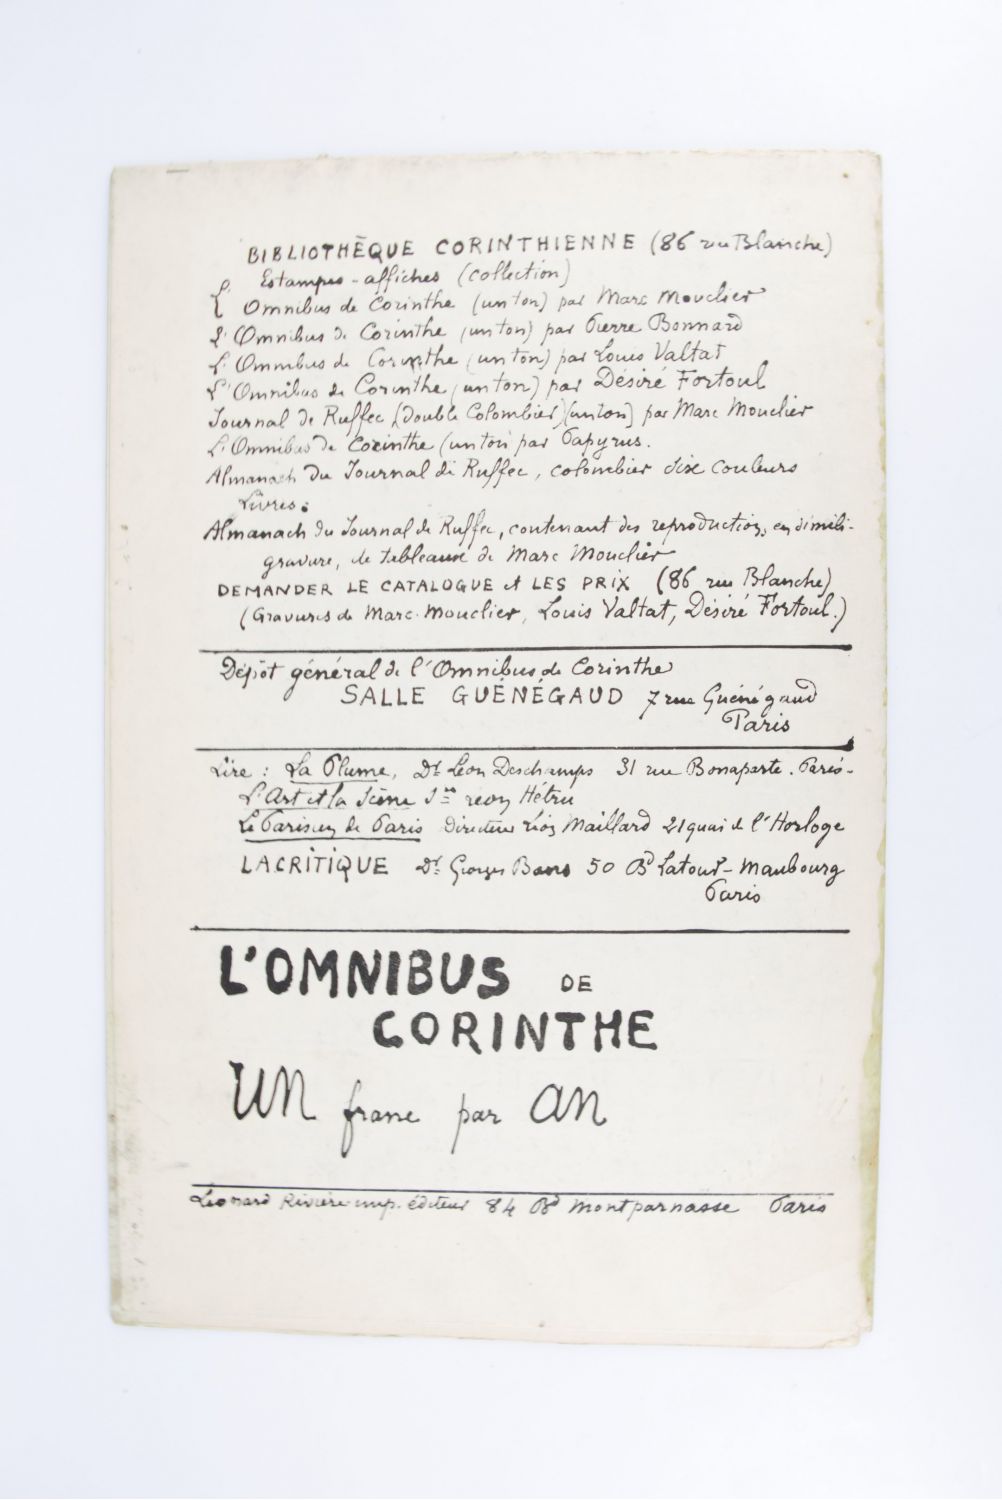 BIBLIOTHÈQUE CORINTHIENNE (86 rue Blanche)
Estampes-affiches (collection)
L'Omnibus de Corinthe (un ton) par Marc Mouclier
L'Omnibus de Corinthe (un ton) par Pierre Bonnard
L'Omnibus de Corinthe (un ton) par Louis Valtat
L'Omnibus de Corinthe (un ton) par Désiré Fortoul
Journal de Ruffec (double Colombier) (un ton) par Marc Mouclier
L'Omnibus de Corinthe (un ton par Papyrus.
Almanach du Journal de Ruffec, colombier six couleurs
Livres:
Almanach du Journal de Ruffec, contenant des reproductions, en simili-
gravure, de tableaux de Marc Mouclier
DEMANDER LE CATALOGUE et LES PRIX (86 rue Blanche)
(Gravures de Marc-Mouclier, Louis Valtat, Désiré Fortoul.)
Dépôt général de l'Omnibus de Corinthe
SALLE GUÉNÉGAUD 7 rue Guénégaud
Paris
Lire: La Plume, Dr Léon Deschamps 31 rue Bonaparte. Paris-
L'Art et la Scène
Le Parisien de Paris Directeur Léon Maillard 21 quai de l'Horloge
LA CRITIQUE Dr Georges Bans 50 Bd Latour-Maubourg
Paris
L'OMNIBUS DE
CORINTHE
UN franc par AN
Léonard Rivière imp. éditeur 84 Bd Montparnasse Paris